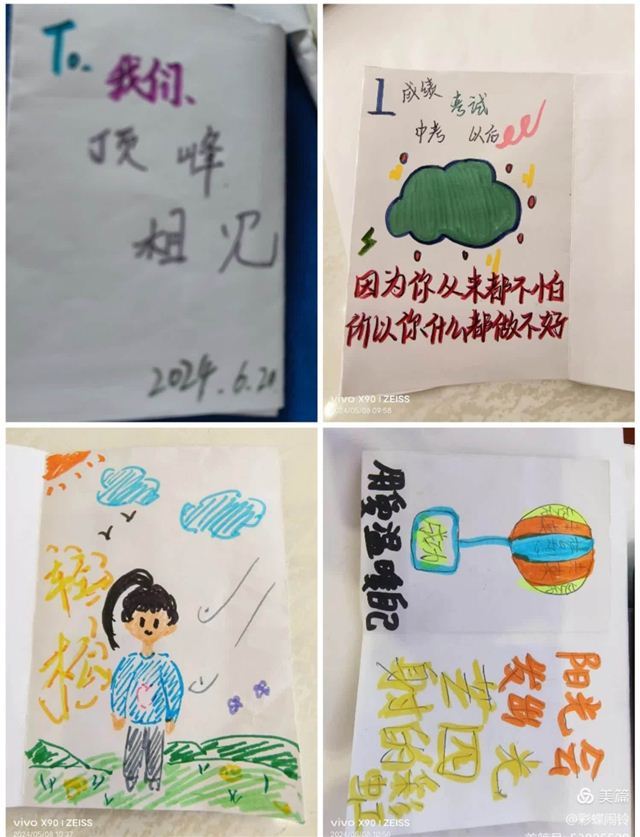 To.
我们、
顶峰
相见
2024.6.20
1 成绩 考试
中考 以后
因为你从来都不怕
所以你什么都做不好
vivo X90 | ZEISS
2024/05/08 09:58
轻
松
vivo X90 | ZEISS
2024/05/08 10:37
用爱温暖自己
成功
阳光会
发出
光
因
的
射
vivo X90 | ZEISS
2024/05/08 10:56
美篇
@彩蝶闹铃